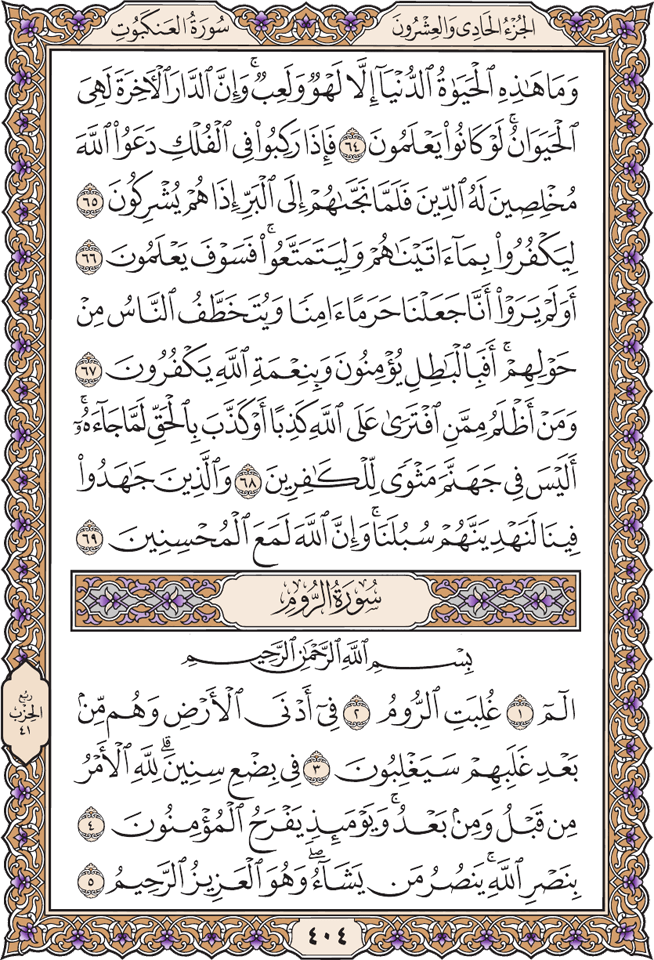 الجُزْءُ الحَادِى وَالعِشْرُونَ
سُورَةُ العَنكَبُوتِ
وَمَا هَٰذِهِ ٱلْحَيَوٰةُ ٱلدُّنْيَآ إِلَّا لَهْوٌ وَلَعِبٌ ۚ وَإِنَّ ٱلدَّارَ ٱلْأَخِرَةَ لَهِىَ
ٱلْحَيَوَانُ ۚ لَوْ كَانُوا۟ يَعْلَمُونَ ٦٤ فَإِذَا رَكِبُوا۟ فِى ٱلْفُلْكِ دَعَوُا۟ ٱللَّهَ
مُخْلِصِينَ لَهُ ٱلدِّينَ فَلَمَّا نَجَّىٰهُمْ إِلَى ٱلْبَرِّ إِذَا هُمْ يُشْرِكُونَ ٦٥
لِيَكْفُرُوا۟ بِمَآ ءَاتَيْنَٰهُمْ وَلِيَتَمَتَّعُوا۟ ۖ فَسَوْفَ يَعْلَمُونَ ٦٦
أَوَلَمْ يَرَوْا۟ أَنَّا جَعَلْنَا حَرَمًا ءَامِنًا وَيُتَخَطَّفُ ٱلنَّاسُ مِنْ
حَوْلِهِمْ ۚ أَفَبِٱلْبَٰطِلِ يُؤْمِنُونَ وَبِنِعْمَةِ ٱللَّهِ يَكْفُرُونَ ٦٧
وَمَنْ أَظْلَمُ مِمَّنِ ٱفْتَرَىٰ عَلَى ٱللَّهِ كَذِبًا أَوْ كَذَّبَ بِٱلْحَقِّ لَمَّا جَآءَهُۥٓ ۚ
أَلَيْسَ فِى جَهَنَّمَ مَثْوًى لِّلْكَٰفِرِينَ ٦٨ وَٱلَّذِينَ جَٰهَدُوا۟
فِينَا لَنَهْدِيَنَّهُمْ سُبُلَنَا ۚ وَإِنَّ ٱللَّهَ لَمَعَ ٱلْمُحْسِنِينَ ٦٩
سُورَةُ الرُّومِ
بِسْمِ ٱللَّهِ ٱلرَّحْمَٰنِ ٱلرَّحِيمِ
الٓمٓ ١ غُلِبَتِ ٱلرُّومُ ٢ فِىٓ أَدْنَى ٱلْأَرْضِ وَهُم مِّنۢ
بَعْدِ غَلَبِهِمْ سَيَغْلِبُونَ ٣ فِى بِضْعِ سِنِينَ ۗ لِلَّهِ ٱلْأَمْرُ
مِن قَبْلُ وَمِنۢ بَعْدُ ۚ وَيَوْمَئِذٍ يَفْرَحُ ٱلْمُؤْمِنُونَ ٤
بِنَصْرِ ٱللَّهِ ۚ يَنصُرُ مَن يَشَآءُ ۖ وَهُوَ ٱلْعَزِيزُ ٱلرَّحِيمُ ٥
ربع
الحِزْب
٤١
٤٠٤